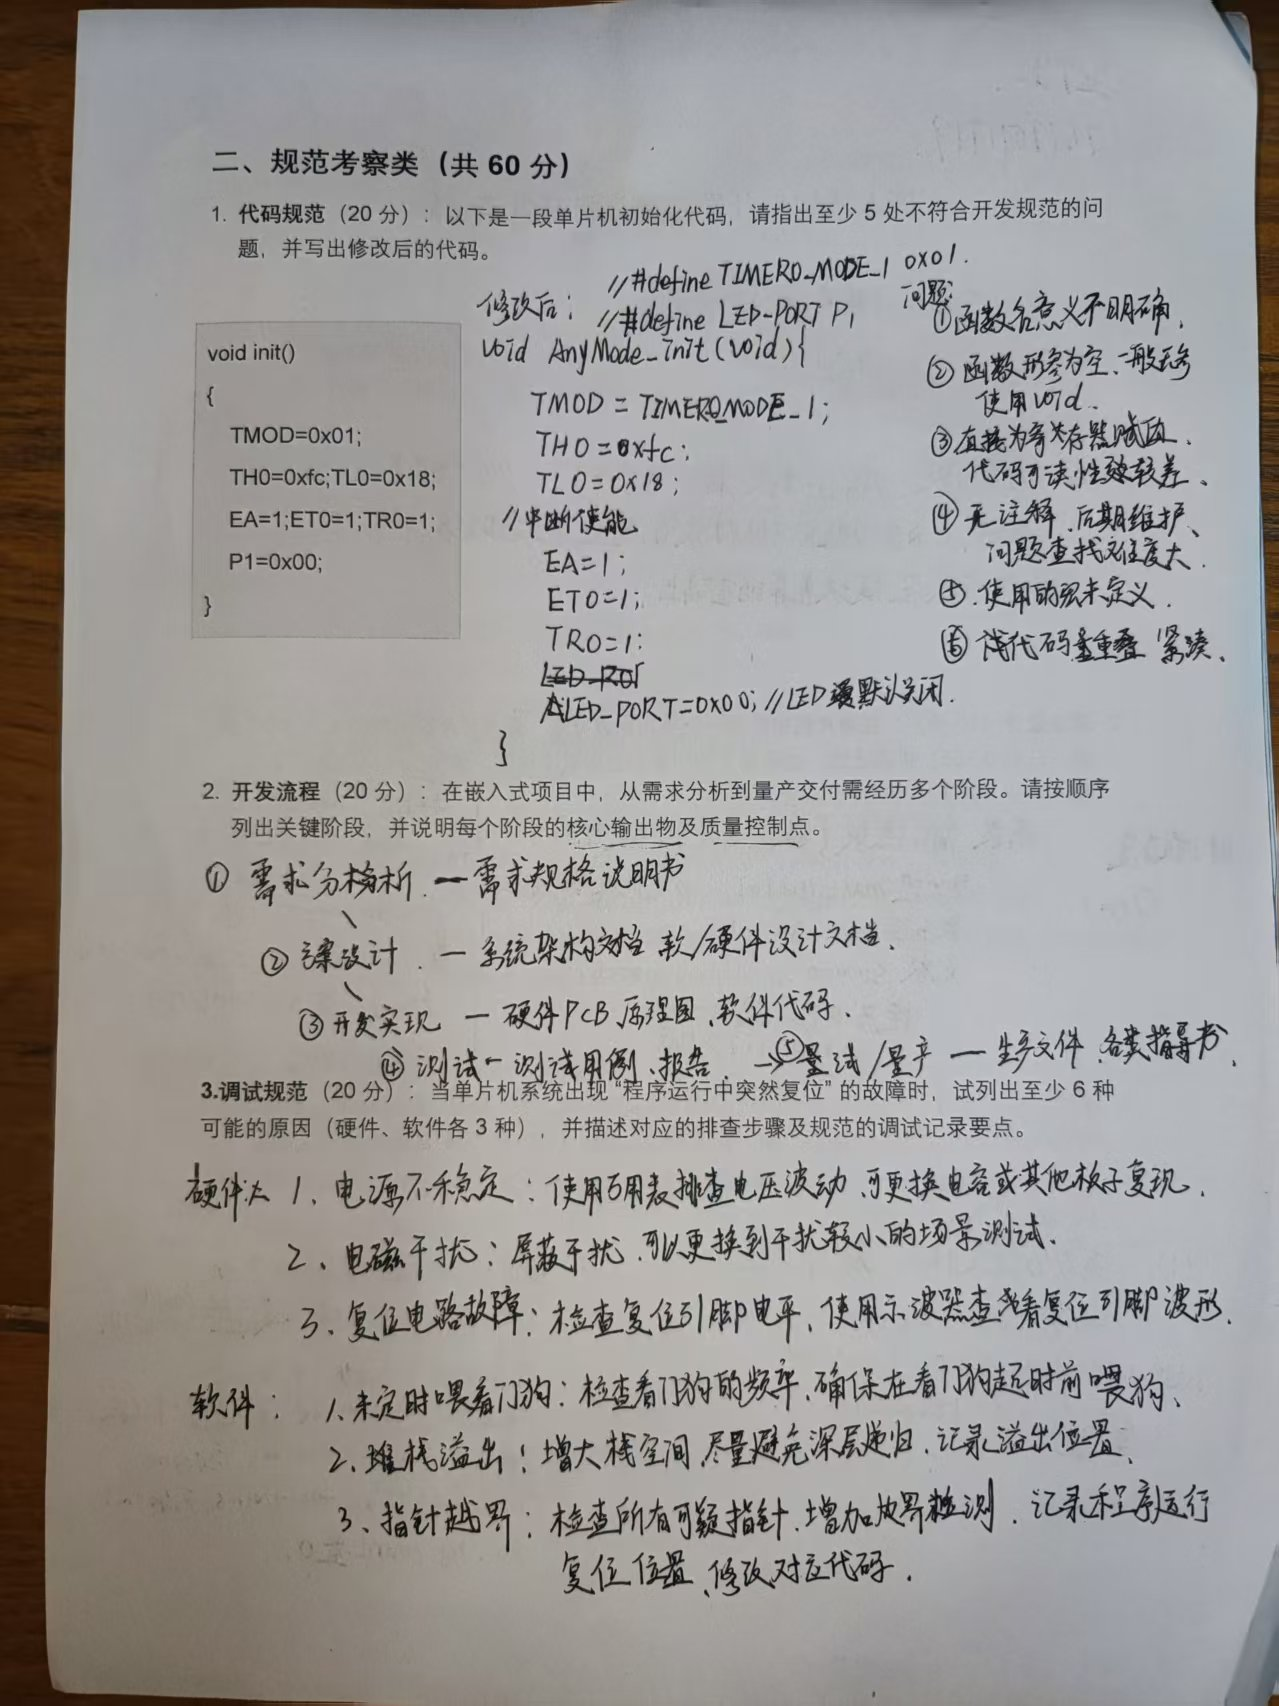 二、规范考察类（共 60 分）
1. 代码规范（20 分）：以下是一段单片机初始化代码，请指出至少 5 处不符合开发规范的问
题，并写出修改后的代码。
void init()
{
TMOD=0x01;
TH0=0xfc;TL0=0x18;
EA=1;ET0=1;TR0=1;
P1=0x00;
}
修改后：
//#define TIMER0_MODE_1 0x01.
//#define LED-PORT P1
void AnyMode_init(void){
TMOD = TIMER0_MODE_1;
TH0=0xfc;
TL0=0x18;
//中断使能
EA=1;
ET0=1;
TR0=1:
LED_PORT=0x00; //LED 默认关闭.
}
问题
①函数名意义不明确,
②函数形参为空、一般无参
使用void.
③直接为寄存器赋值、
代码可读性较差、
④无注释、后期维护、
问题查找难度大.
⑤.使用的宏未定义.
⑥ 代码重叠 紧凑、
2. 开发流程（20 分）：在嵌入式项目中，从需求分析到量产交付需经历多个阶段。请按顺序
列出关键阶段，并说明每个阶段的核心输出物及质量控制点。
① 需求分析 — 需求规格说明书
② 方案设计 — 系统架构文档 软/硬件设计文档.
③ 开发实现 — 硬件PCB原理图、软件代码.
④ 测试—测试用例、报告. →⑤量试/量产 — 生产文件、各类指导书.
3.调试规范（20 分）：当单片机系统出现“程序运行中突然复位”的故障时，试列出至少 6 种
可能的原因（硬件、软件各 3 种），并描述对应的排查步骤及规范的调试记录要点。
硬件: 1、电源不稳定：使用万用表排查电压波动、可更换电容或其他板子复现.
2、电磁干扰：屏蔽干扰、可以更换到干扰较小的场景测试.
3、复位电路故障：检查复位引脚电平、使用示波器查看复位引脚波形.
软件： 1、未定时喂看门狗：检查看门狗的频率、确保在看门狗超时前喂狗、
2、堆栈溢出：增大栈空间、尽量避免深层递归、记录溢出位置、
3、指针越界：检查所有可疑指针、增加边界检测、记录程序运行
复位位置、修改对应代码.